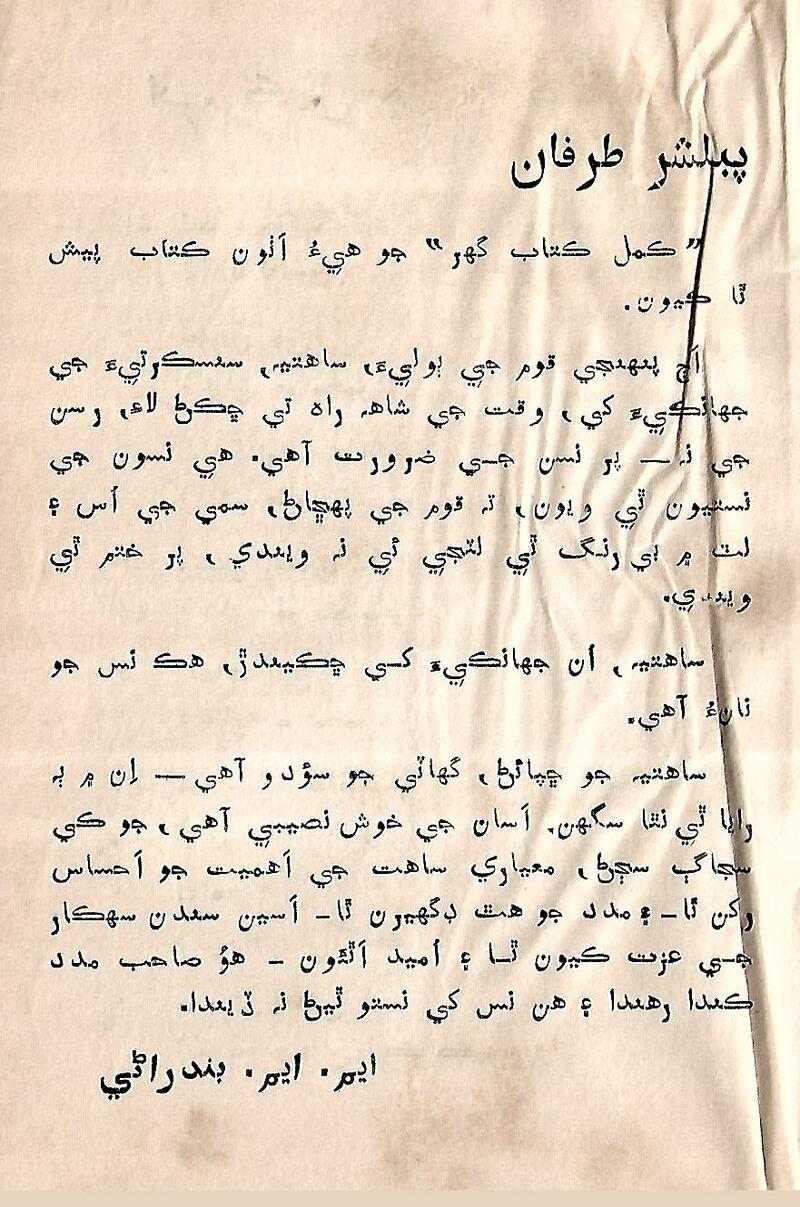 پبلشر طرفان
”ڪمل ڪتاب گهر“ جو هيءُ اَٺون ڪتاب پيش
ٿا ڪيون.
اَڄ پنهنجي قوم جي ٻوليءَ، ساهتيہ، سنسڪرتيءَ جي
جهانڪيءَ کي، وقت جي شاهہ راه تي ڇڪڻ لاءِ، رسن
جي نہ — پر نسن جي ضرورت آهي. هي نسون جي
نستيون ٿي ويون، تہ قوم جي پهچاڻ، سمي جي اُس ۽
لٽ ۾ بي رنگ ٿي لٽجي ئي نہ ويندي، پر ختم ٿي
ويندي.
ساهتيہ، اُن جهانڪيءَ کي ڇڪيندڙ، هڪ نس جو
نانءُ آهي.
ساهتيہ جو ڇپائڻ، گهاٽي جو سؤدو آهي — اِن ۾ ٻہ
رايا ٿي نٿا سگهن. اَسان جي خوش نصيبي آهي، جو ڪي
سجاڳ سڄڻ، معياري ساهت جي اَهميت جو اَحساس
رکن ٿا ـ ۽ مدد جو هٿ ڊگهيرن ٿا ـ اَسين سندن سهڪار
جي عزت ڪيون ٿا ۽ اُميد اَٿئون ـ هؤ صاحب مدد
ڪندا رهندا ۽ هن نس کي نستو ٿيڻ نہ ڏيندا.
ايم. ايم. بندراڻي